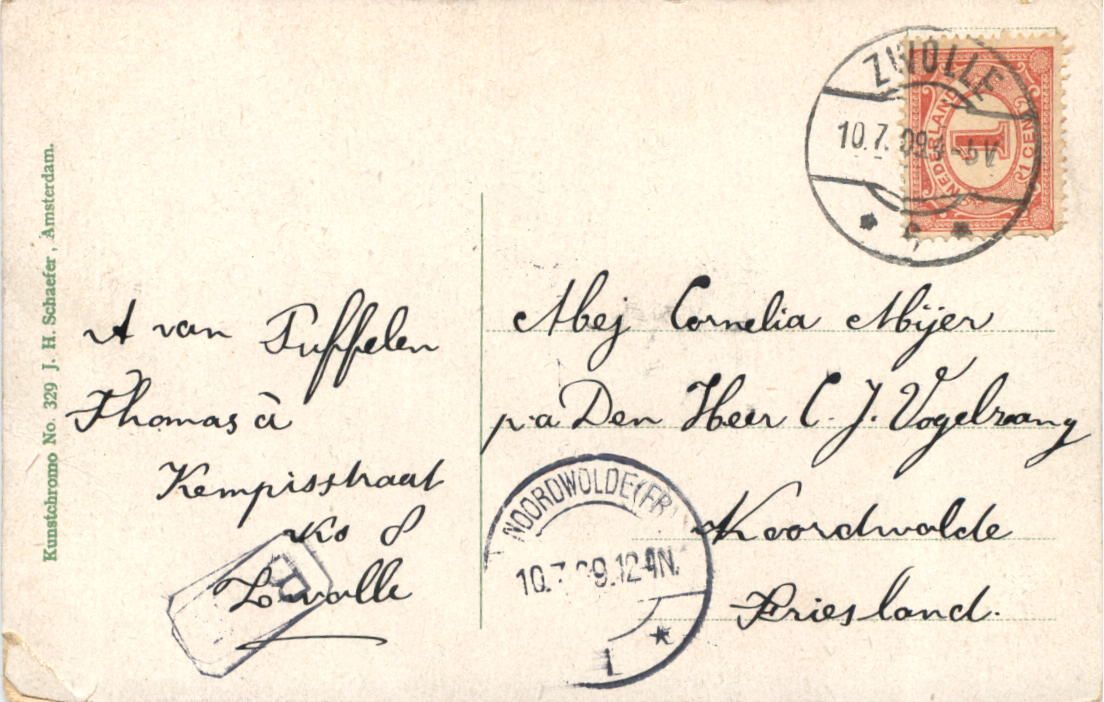 Kunstchromo No. 329 J. H. Schaefer, Amsterdam.
A van Puffelen
Thomas à
Kempisstraat
No 8
Zwolle
ZWOLLE
10.7.09
NEDERLAND
1
1 CENT
Mej Cornelia Mijer
p.a Den Heer C. J. Vogelzang
Noordwolde
Friesland.
NOORDWOLDE (FR
10.7.09.12-4N.
1